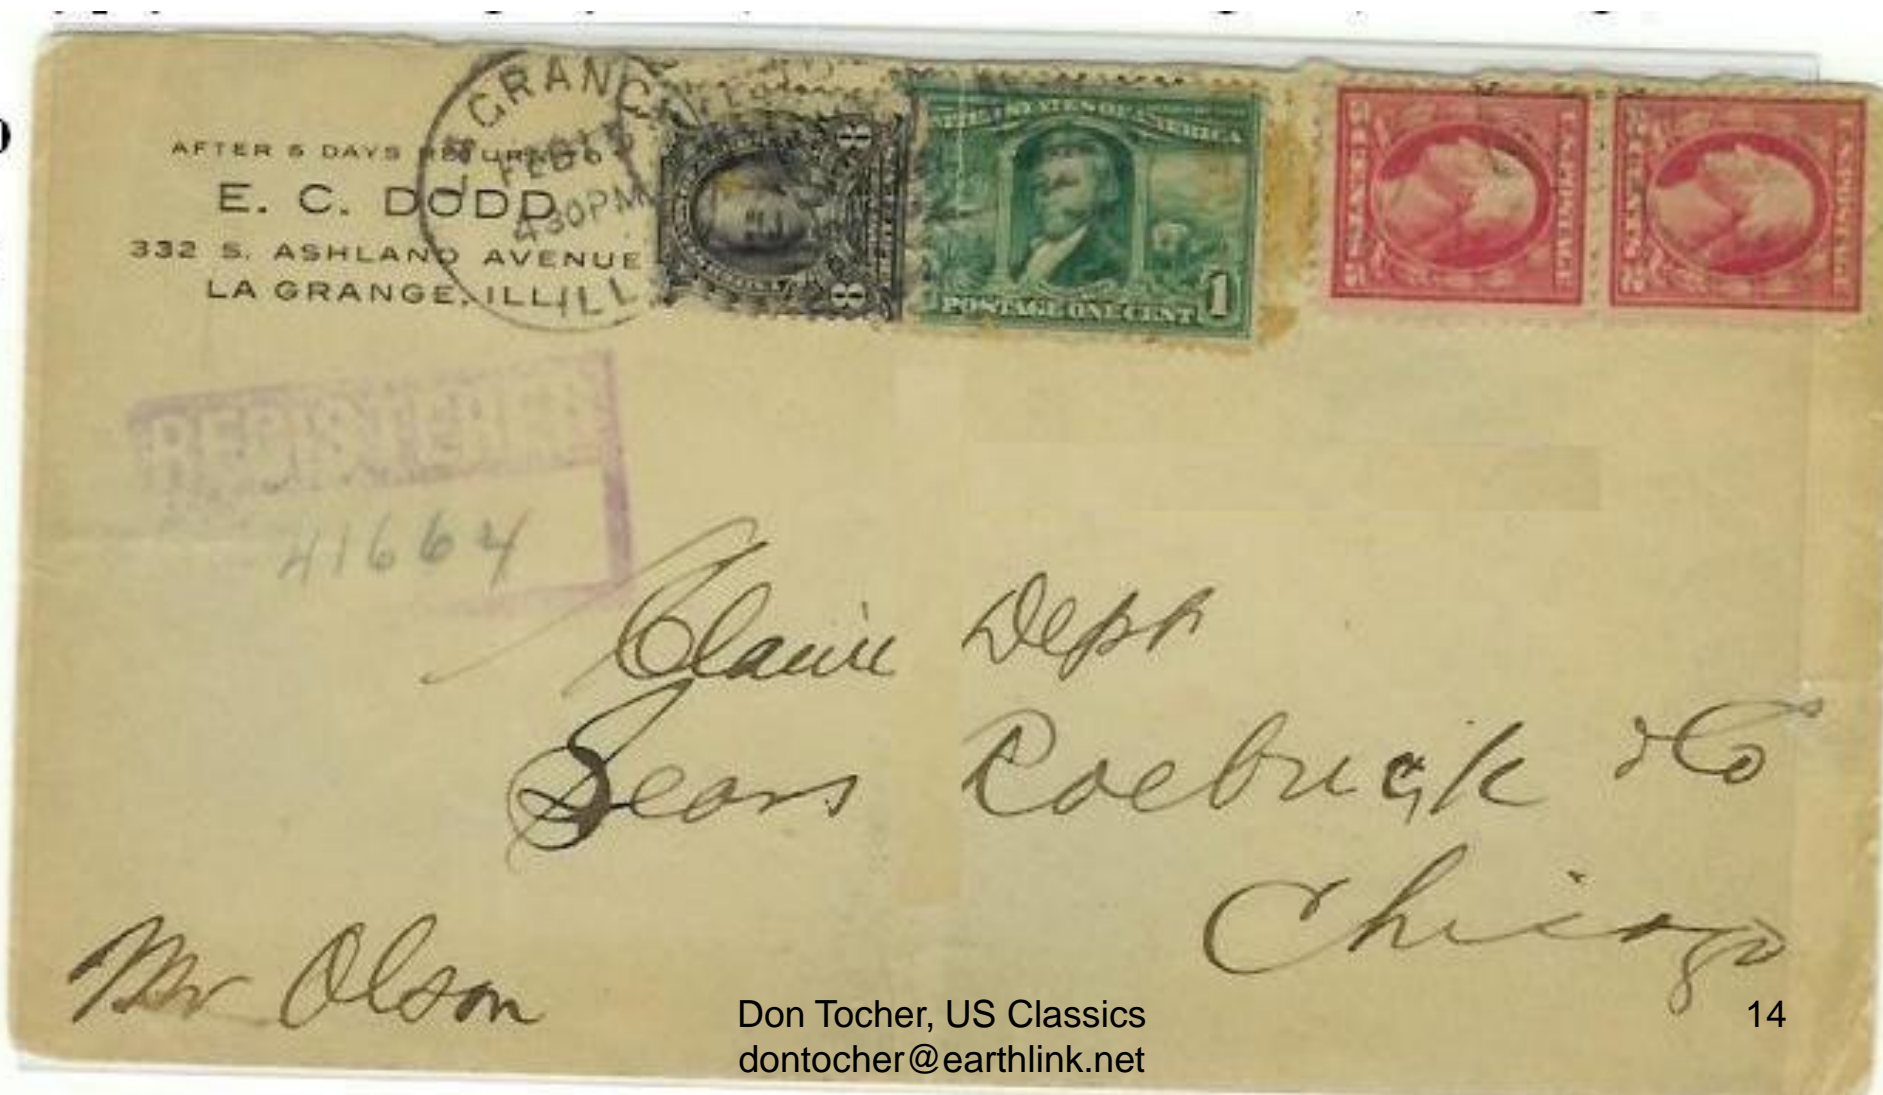 AFTER 5 DAYS RETURN TO
E. C. DODD
332 S. ASHLAND AVENUE
LA GRANGE, ILL.
GRANGE
FEB
4 30 PM
ILL.
8
8
UNITED STATES OF AMERICA
POSTAGE ONE CENT 1
2 CENTS 2
U.S. POSTAGE
2 CENTS 2
U.S. POSTAGE
REGISTERED
41664
Claim Dept
Sears Roebuck & Co
Chicago
Mr Olson
Don Tocher, US Classics
dontocher@earthlink.net
14